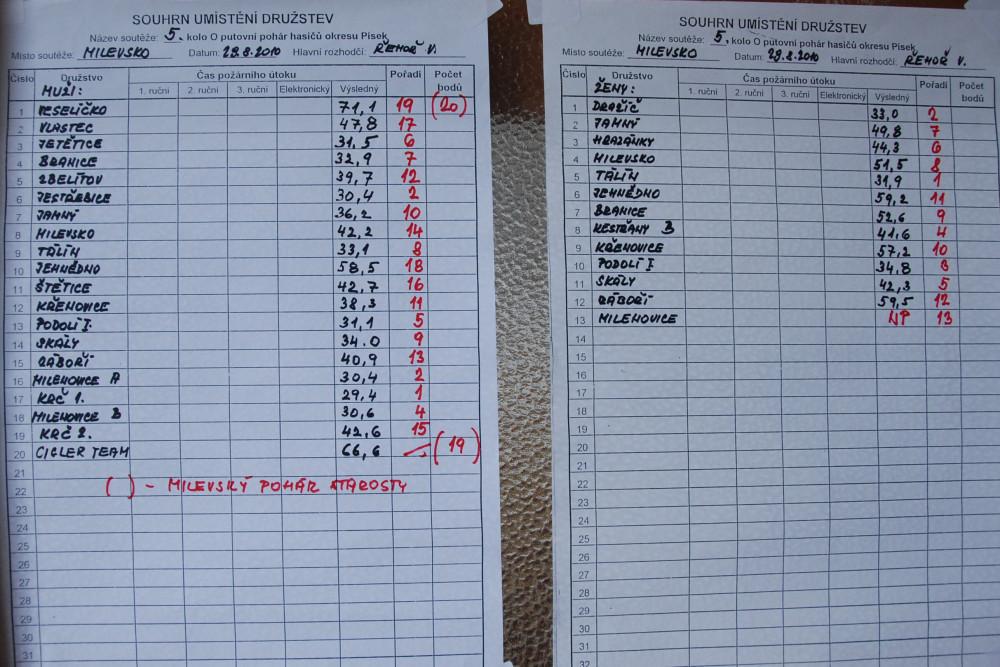 SOUHRN UMÍSTĚNÍ DRUŽSTEV
Název soutěže: 5. kolo O putovní pohár hasičů okresu Písek
Místo soutěže: MILEVSKO Datum: 28.8.2010 Hlavní rozhodčí: ŘEHOŘ V.
Číslo Družstvo Čas požárního útoku Pořadí Počet bodů
MUŽI: 1. ruční 2. ruční 3. ruční Elektronický Výsledný
1 VESELÍČKO 71,1 19 (20)
2 VLASTEC 47,8 17
3 JETĚTICE 31,5 6
4 BRANICE 32,9 7
5 ZBELÍTOV 39,7 12
6 JESTŘEBICE 30,4 2
7 JAMNÝ 36,2 10
8 MILEVSKO 42,2 14
9 TÁLÍN 33,1 8
10 JEHNĚDNO 58,5 18
11 ŠTĚTICE 42,7 16
12 KŘENOVICE 38,3 11
13 PODOLÍ I. 31,1 5
14 SKÁLY 34.0 9
15 ZÁBOŘÍ 40,9 13
16 MILENOVICE A 30,4 2
17 KRČ 1. 29,4 1
18 MILENOVICE B 30,6 4
19 KRČ 2. 42,6 15
20 CIGLER TEAM 66,6 – (19)
21
22 ( ) - MILEVSKÝ POHÁR STAROSTY
23
24
25
26
27
28
29
30
31
SOUHRN UMÍSTĚNÍ DRUŽSTEV
Název soutěže: 5. kolo O putovní pohár hasičů okresu Písek
Místo soutěže: MILEVSKO Datum: 28.8.2010 Hlavní rozhodčí: ŘEHOŘ V.
Číslo Družstvo Čas požárního útoku Pořadí Počet bodů
ŽENY: 1. ruční 2. ruční 3. ruční Elektronický Výsledný
1 DRAŽÍČ 33,0 2
2 JAMNÝ 49,8 7
3 HRAZÁNKY 44,3 6
4 MILEVSKO 51,5 8
5 TÁLÍN 31,9 1
6 JEHNĚDNO 59,2 11
7 BRANICE 52,6 9
8 KESTŘANY B 41,6 4
9 KŘENOVICE 57,2 10
10 PODOLÍ I 34,8 3
11 SKÁLY 42,3 5
12 ZÁBOŘÍ 59,5 12
13 MILENOVICE NP 13
14
15
16
17
18
19
20
21
22
23
24
25
26
27
28
29
30
31
32